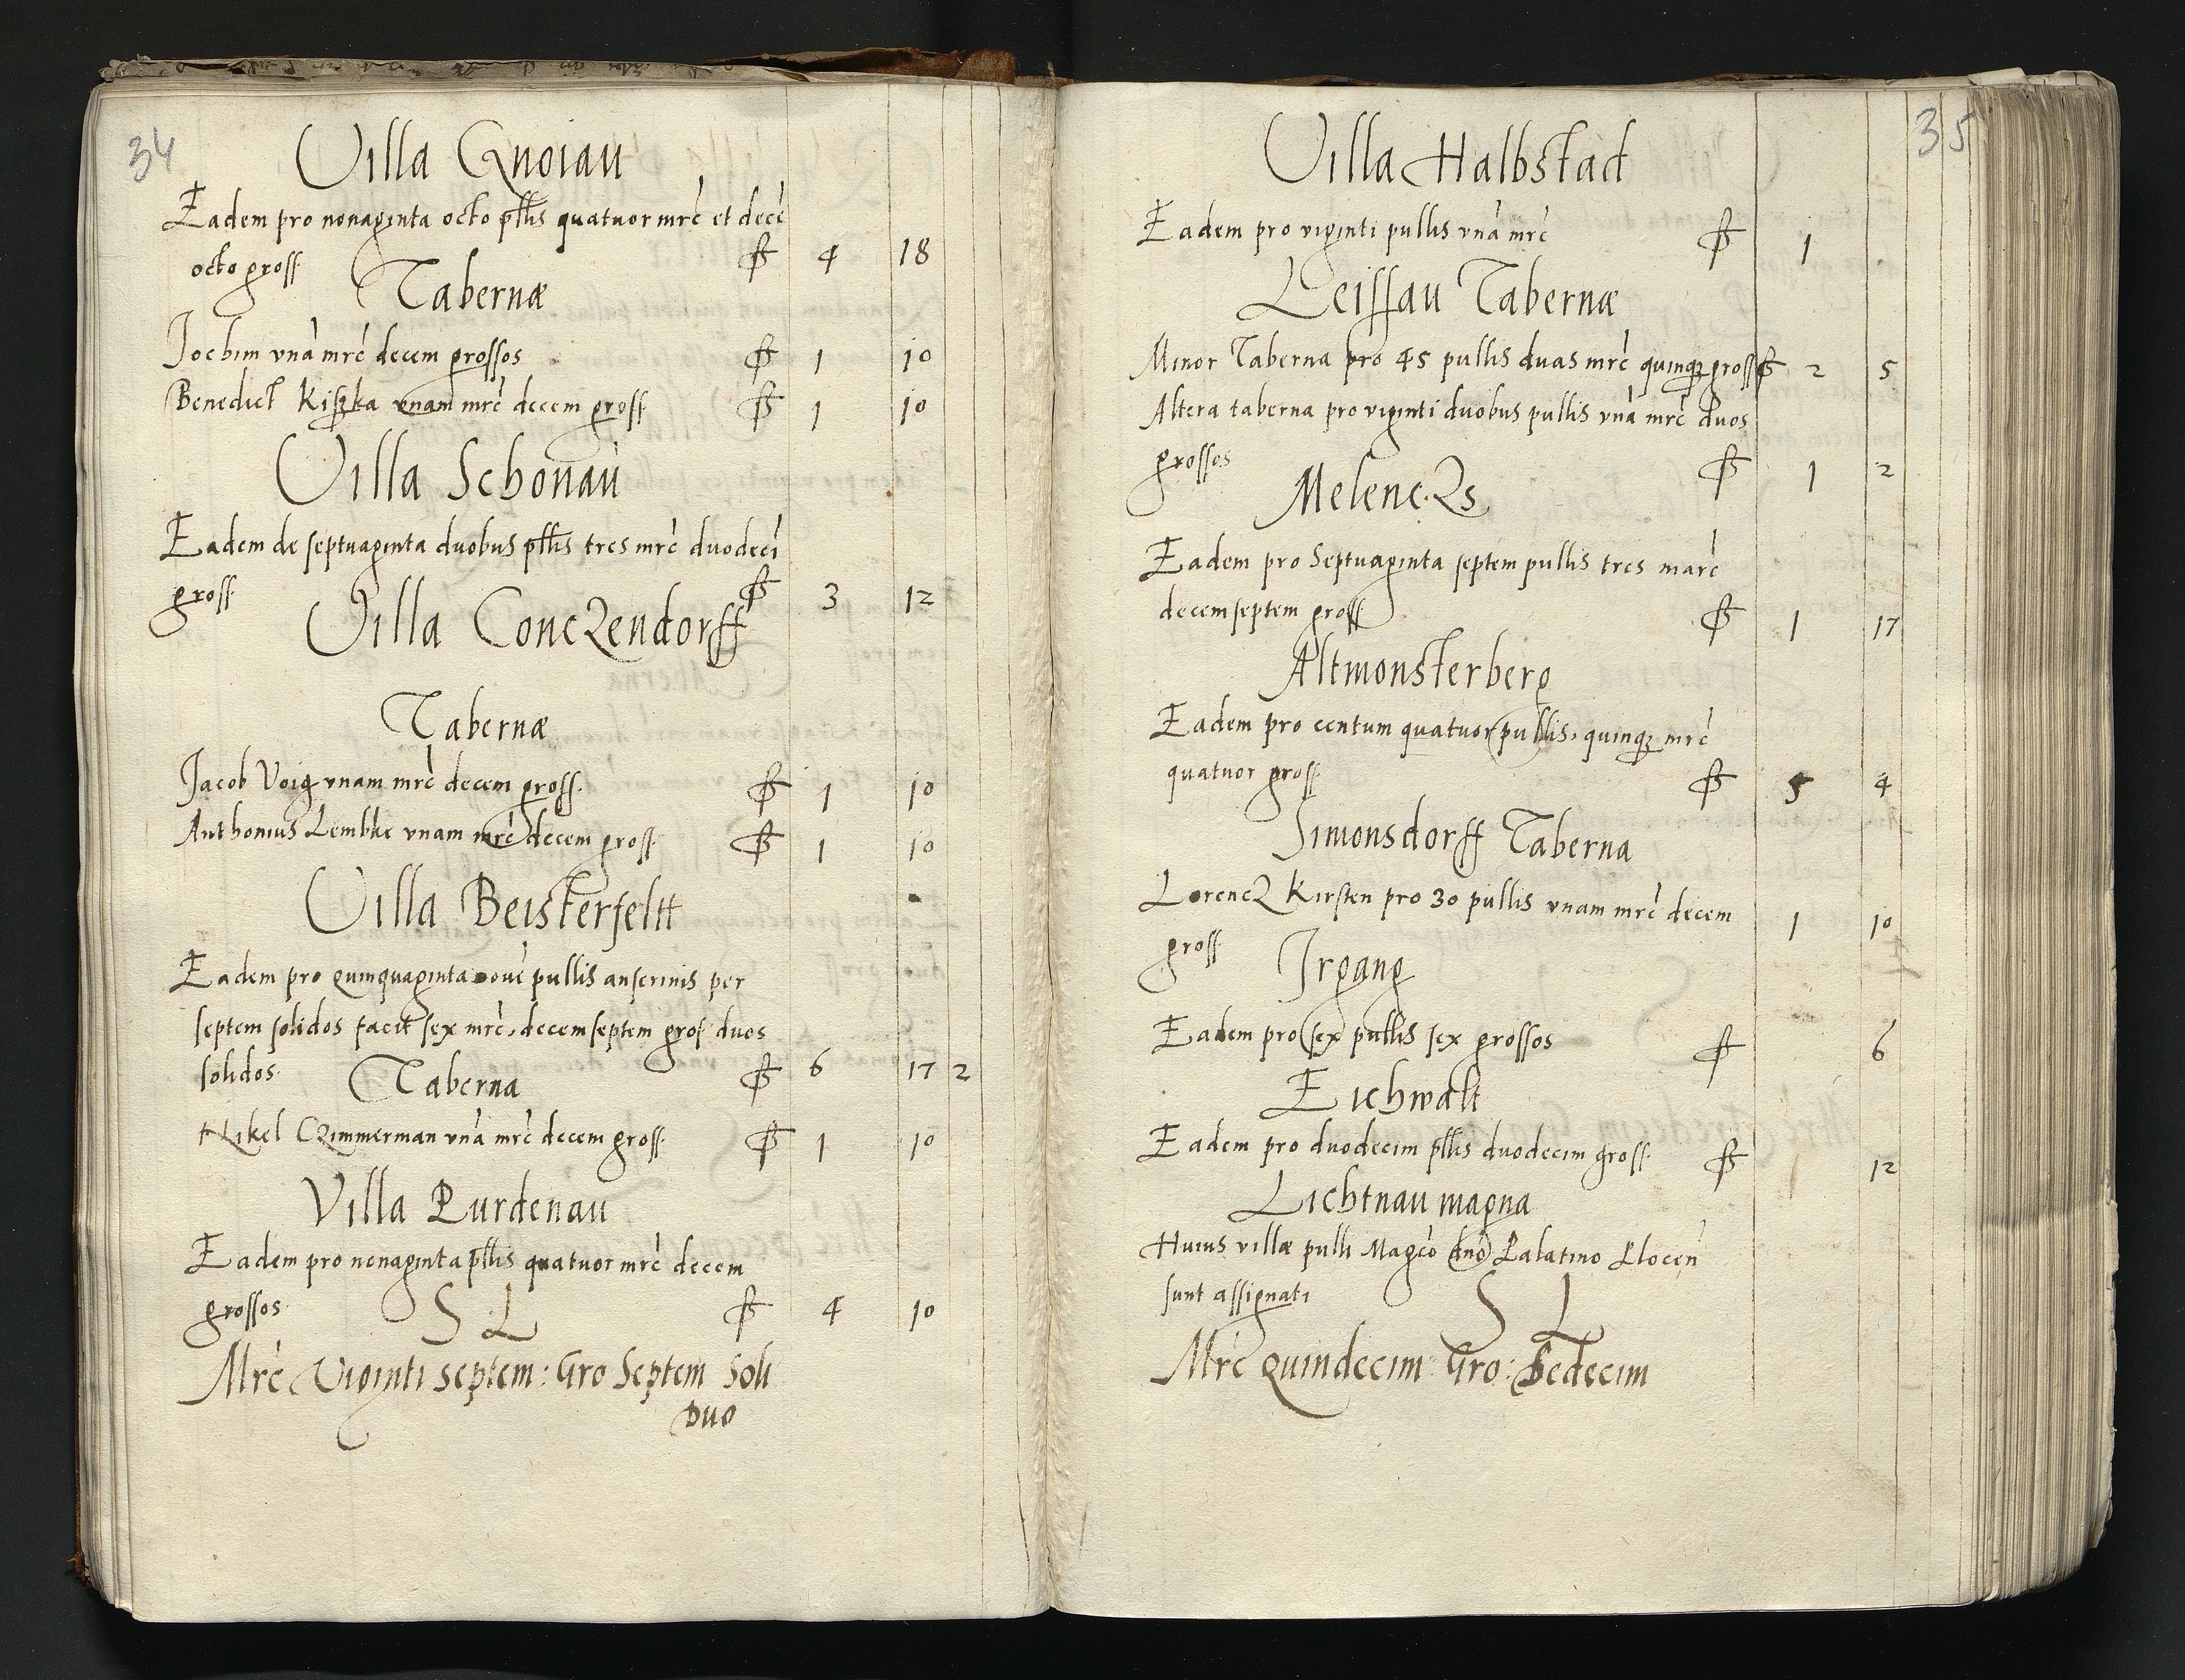 34
Villa Gnoiau
Eadem pro nonaginta octo pllis quatuor mrc et dece
octo gross. ꝑ 4 18
Tabernæ
Jochim vna mrc decem grossos ꝑ 1 10
Benedict Kiszka vnam mrc decem gross. ꝑ 1 10
Villa Schonau
Eadem de septuaginta duobus pllis tres mrc duodeci
gross. ꝑ 3 12
Villa Conczendorff
Tabernæ
Jacob Voig vnam mrc decem gross. ꝑ 1 10
Anthonius Lembke vnam mrc decem gross. ꝑ 1 10
Villa Beisterfeltt
Eadem pro quinquaginta noue pullis anserinis per
septem solidos facit sex mrc, decemseptem gros duos
solidos. ꝑ 6 17 2
Taberna
Nikel Czimmerman vna mrc decem gross. ꝑ 1 10
Villa Purdenau
Eadem pro nonaginta pllis quatuor mrc decem
grossos. ꝑ 4 10
S L
Mrc Viginti septem: Gro Septem Soli
Duo
35
Villa Halbstad
Eadem pro viginti pullis vna mrc ꝑ 1
Leissau Tabernæ
Minor Taberna pro 45 pullis duas mrc quinqꝫ gross ꝑ 2 5
Altera taberna pro viginti duobus pullis vna mrc duos
grossos ꝑ 1 2
Melenczs
Eadem pro Septuaginta septem pullis tres marc
decemseptem gross ꝑ 1 17
Altmonsterberg
Eadem pro centum quatuor pullis, quinqꝫ mrc
quatuor gross. ꝑ 5 4
Simonsdorff Taberna
Lorencz Kirsten pro 30 pullis vnam mrc decem 1 10
gross.
Irgang
Eadem pro sex pullis sex grossos ꝑ 6
Eichwalt
Eadem pro duodecim pllis duodecim gross. ꝑ 12
Lichtnau magna
Huius villæ pulli Magco dno Palatino Plocen
sunt assignati
S L
Mrc quindecim: Gro: Sedecim